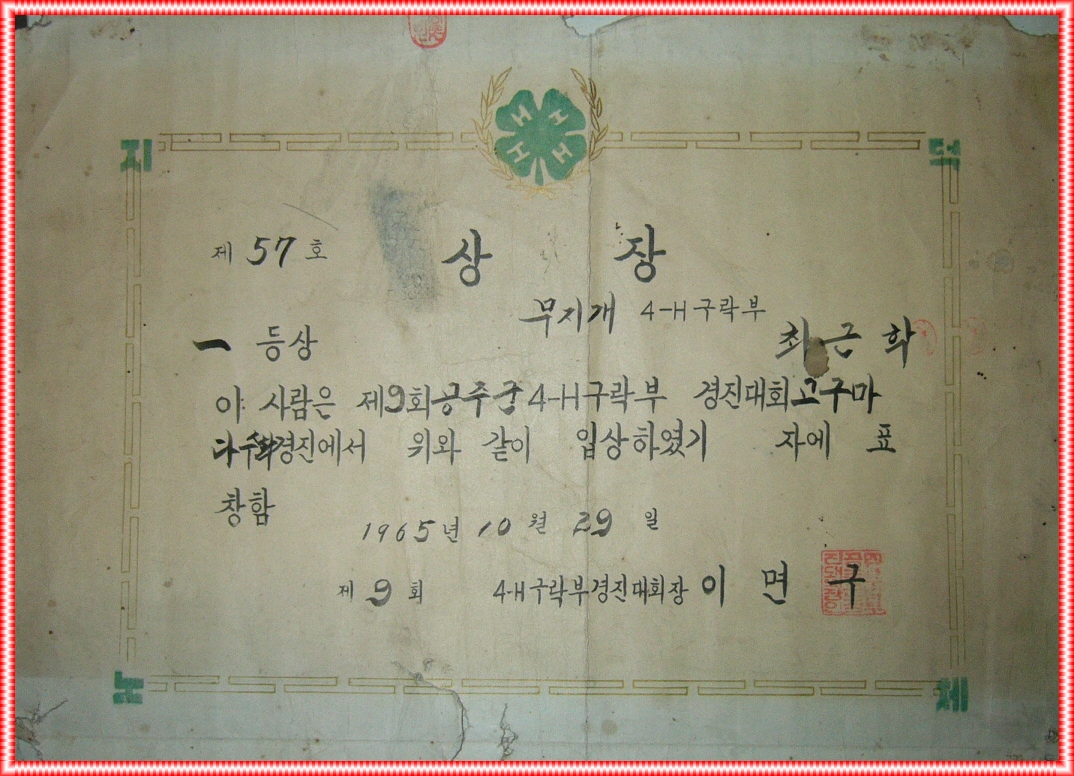 H H H H
지 덕
제 57 호 상 장
무지개 4-H구락부
一 등상 최근학
이 사람은 제9회공주군4-H구락부 경진대회고구마
다수확경진에서 위와 같이 입상하였기 자에 표
창함
1965년 10월 29일
제 9 회 4-H구락부경진대회장 이 면 구
노 체